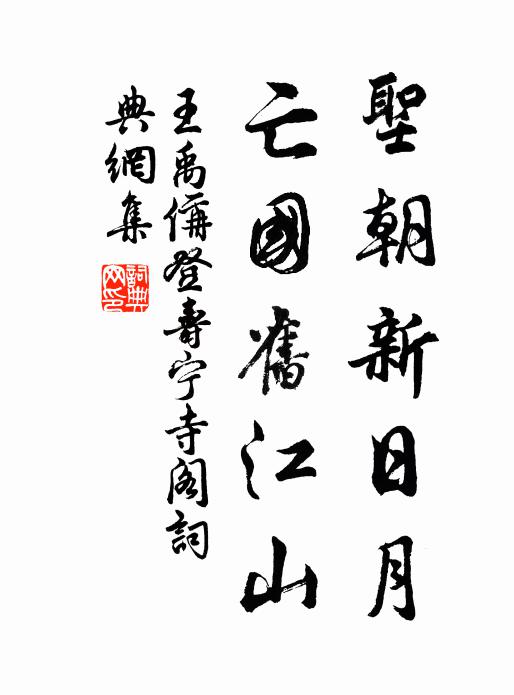 聖朝新日月
亡國舊江山
王禹偁登壽宁寺阁詞
典網集
詞典网印